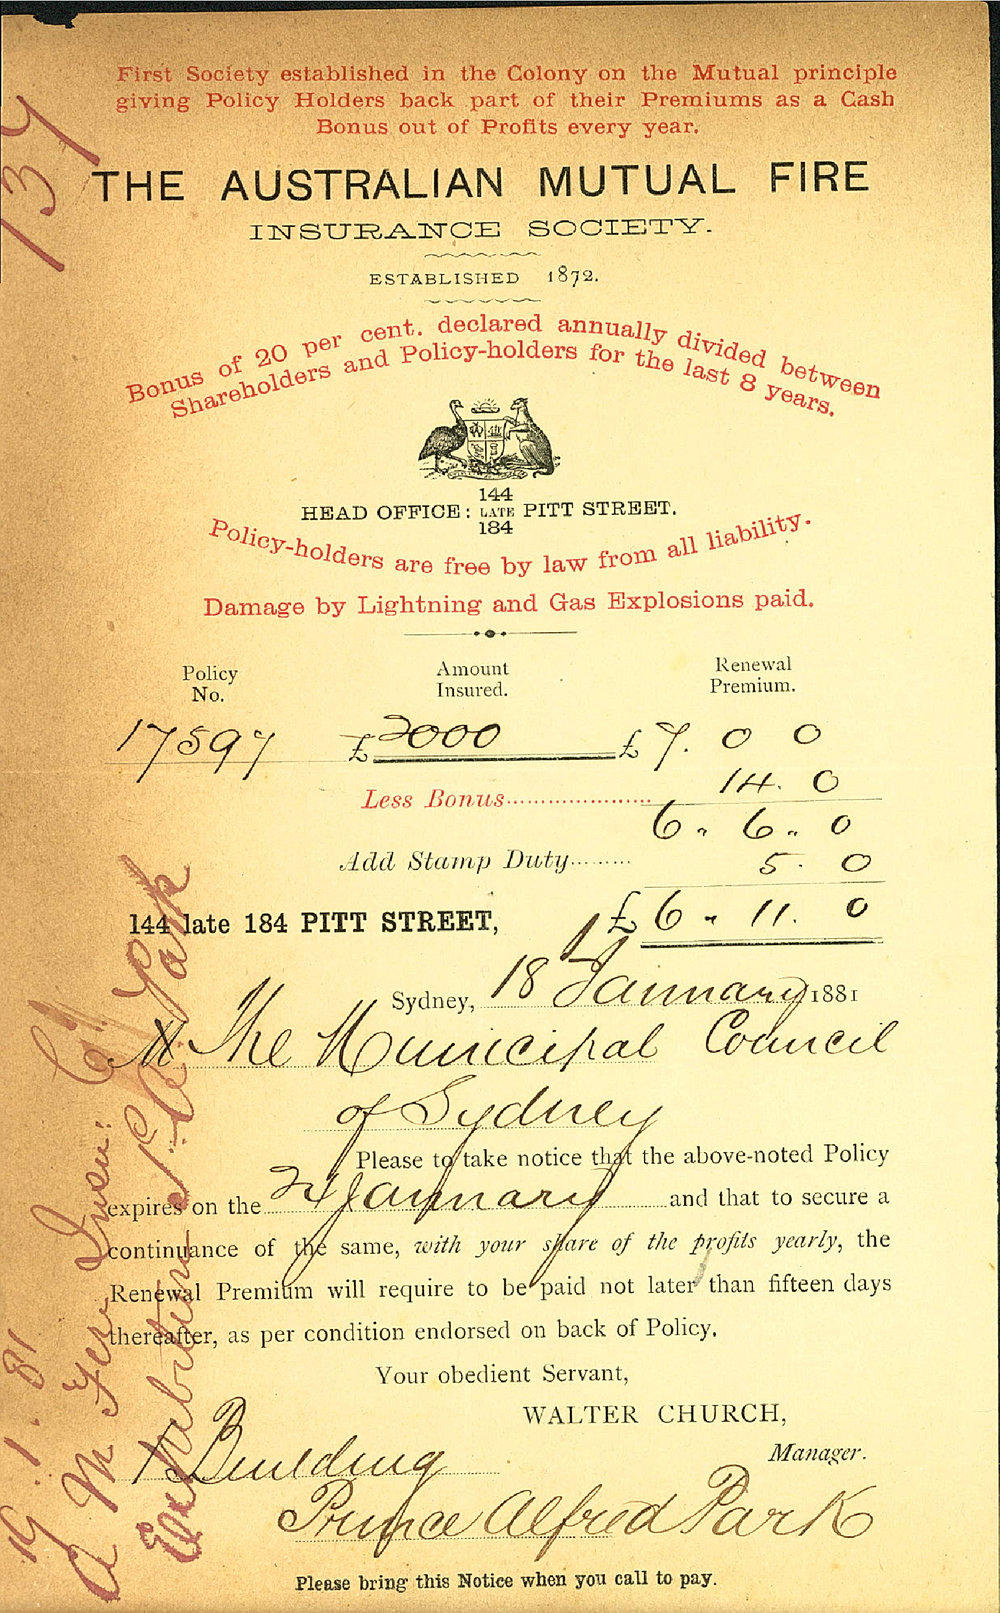 First Society established in the Colony on the Mutual principle
giving Policy Holders back part of their Premiums as a Cash
Bonus out of Profits every year.
THE AUSTRALIAN MUTUAL FIRE
INSURANCE SOCIETY.
ESTABLISHED 1872.
Bonus of 20 per cent. declared annually divided between
Shareholders and Policy-holders for the last 8 years.
144
HEAD OFFICE: LATE PITT STREET.
184
Policy-holders are free by law from all liability.
Damage by Lightning and Gas Explosions paid.
Policy No.
Amount Insured.
Renewal Premium.
17597 £2000 £7. 0 0
Less Bonus 14. 0
6 " 6 " 0
Add Stamp Duty 5. 0
144 late 184 PITT STREET, £6 " 11. 0
Sydney, 18 January 1881
M The Municipal Council
of Sydney
Please to take notice that the above-noted Policy
expires on the 24 January and that to secure a
continuance of the same, with your share of the profits yearly, the
Renewal Premium will require to be paid not later than fifteen days
thereafter, as per condition endorsed on back of Policy.
Your obedient Servant,
WALTER CHURCH,
Manager.
1 Building
Prince Alfred Park
Please bring this Notice when you call to pay.
137
19.1.81
A M Fire Insu: Co
Exhibition P. A. Park